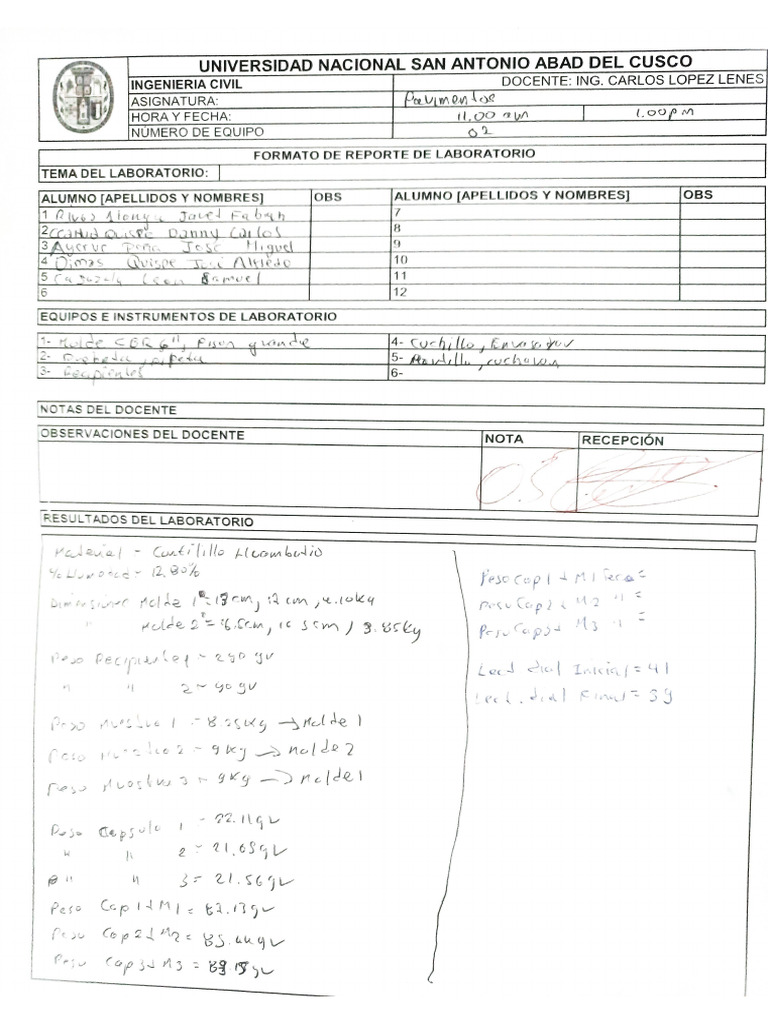 UNIVERSIDAD NACIONAL SAN ANTONIO ABAD DEL CUSCO
INGENIERIA CIVIL DOCENTE: ING. CARLOS LOPEZ LENES
ASIGNATURA: Pavimentos
HORA Y FECHA: 11.00 am 1.00pm
NÚMERO DE EQUIPO 02
FORMATO DE REPORTE DE LABORATORIO
TEMA DEL LABORATORIO:
ALUMNO [APELLIDOS Y NOMBRES] OBS ALUMNO [APELLIDOS Y NOMBRES] OBS
1 Javet Fabian 7
2 Quispe Danny Carlos 8
3 Peña José Miguel 9
4 Dimas Quispe José Alfredo 10
5 Leon Samuel 11
6 12
EQUIPOS E INSTRUMENTOS DE LABORATORIO
1- Molde CBR 6", Pison grande 4- Cuchillo, Enrasador
2- Probeta, pipeta 5- cucharon
3- Recipientes 6-
NOTAS DEL DOCENTE
OBSERVACIONES DEL DOCENTE NOTA RECEPCIÓN
0.5
RESULTADOS DEL LABORATORIO
Material -
% Humedad = 12.80%
Dimensiones Molde 1 = cm, 12 cm, 4.10kg
" Molde 2 = cm, 3.85kg
Peso Recipiente 1 - 240 gr
" " 2 - 90 gr
Peso Muestra 1 = 8.25Kg → Molde 1
Peso Muestra 2 - 9Kg → Molde 2
Peso Muestra 3 - 9Kg → Molde 1
Peso Capsula 1 - 22.11gr
" " 2 = 21.63gr
" " 3 = 21.56gr
Peso Cap 1 + M1 = 82.13gr
Peso Cap 2 + M2 = 83.44gr
Peso Cap 3 + M3 =
Peso Cap 1 + M1 Seca =
Peso Cap 2 + M2 " =
Peso Cap 3 + M3 " =
Lect dial Inicial = 41
Lect. dial Final = 39